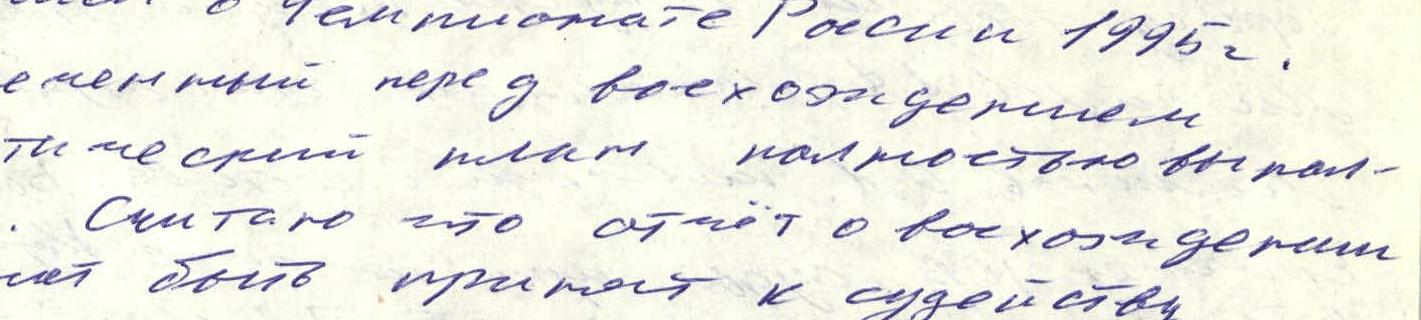 о Чемпионате России 1995г.
еченный перед восхождением
тический план полностью выпол-
. Считаю что отчёт о восхождении
жет быть принят к судейству